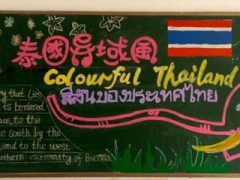 泰國異域風
Colourful Thailand
สีสันของประเทศไทย
ry that lies
is bordered
aos, to the
e south by the
and to the west
thern extremity of Burma